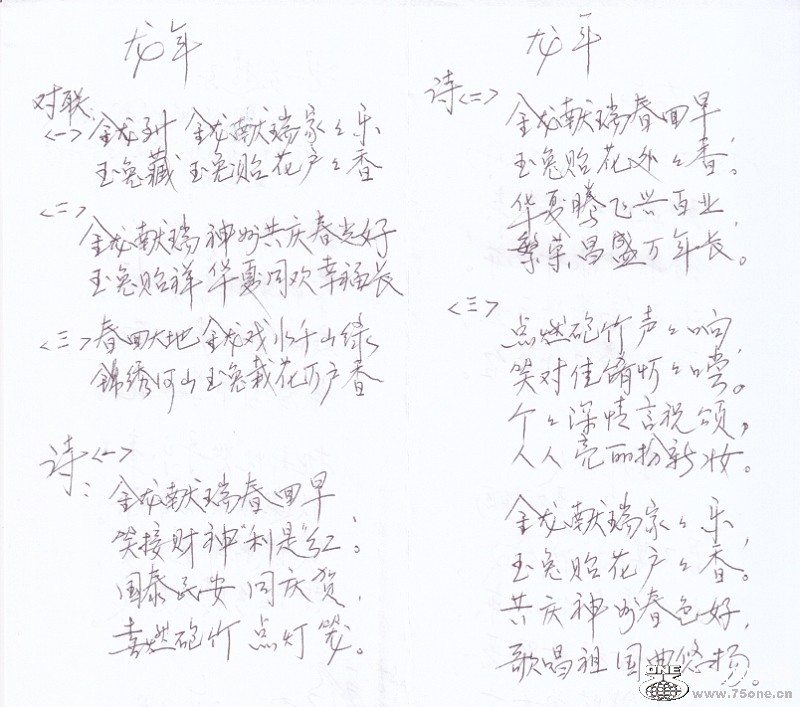 龙年
对联
<一> 金龙到 金龙献瑞家々乐
玉兔藏 玉兔贻花户々香
<二>
金龙献瑞神州共庆春光好
玉兔贻祥华夏同欢幸福长
<三> 春回大地金龙戏水千山绿
锦绣河山玉兔栽花万户香
诗: <一>
金龙献瑞春回早
笑接财神"利是"红。
国泰民安同庆贺,
喜燃砲竹点灯笼。
龙年
诗<二>
金龙献瑞春回早,
玉兔贻花处々香。
华夏腾飞兴百业,
繁荣昌盛万年长。
<三>
点燃砲竹声々响,
笑对佳肴忻々嚐。
个々深情言祝颂,
人人亮丽扮新妆。
金龙献瑞家々乐,
玉兔贻花户々香。
共庆神州春色好,
歌唱祖国曲悠扬。
ONE
www.75one.cn